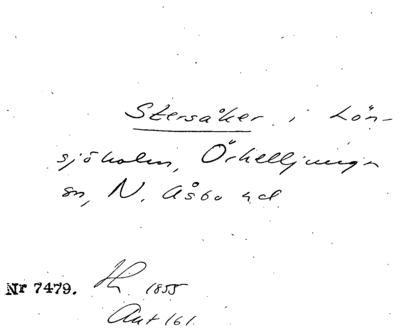 Stersåker i Lön-
sjöholm, Örkelljunga
sn, N. Åsbo hd
Nr 7479. 1855
Ant 161